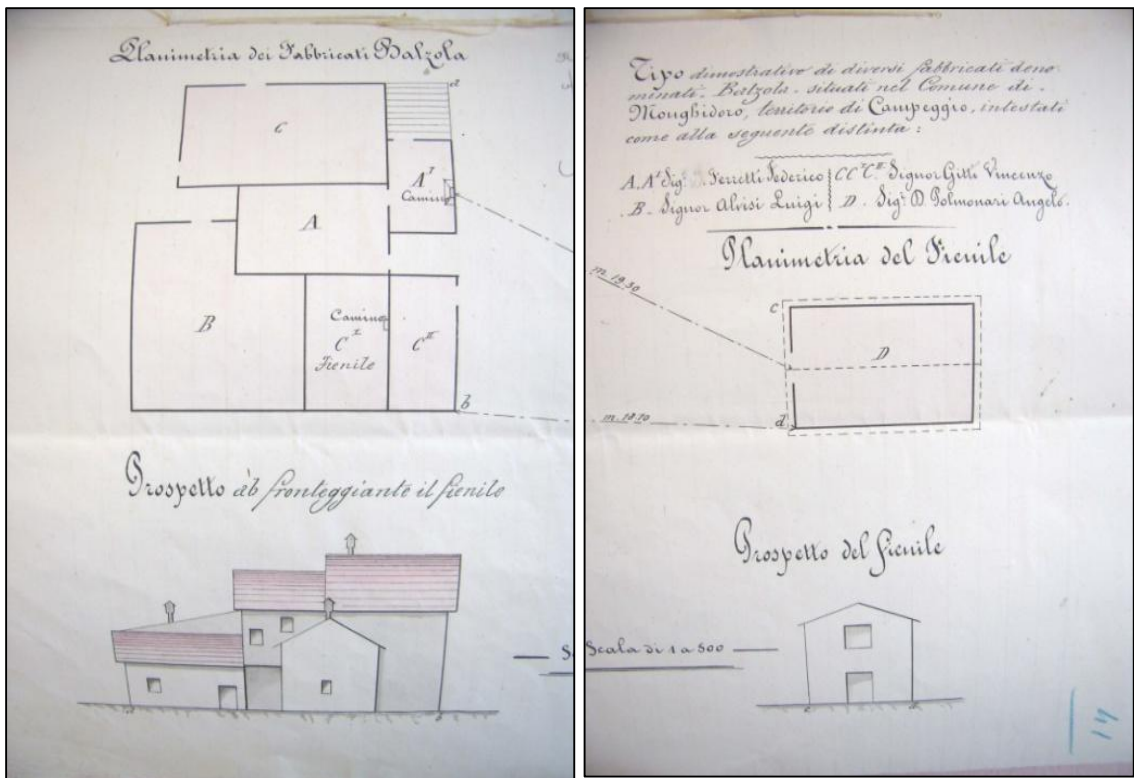 Planimetria dei Fabbricati Balzola
a
C
A^I
Camino
A
B
Camino
C^I
Fienile
C^II
b
Prospetto ab fronteggiante il fienile
a
b
Tipo dimostrativo di diversi fabbricati deno
minati - Balzola - situati nel Comune di -
Monghidoro, territorio di Campeggio, intestati
come alla seguente distinta:
A.A^I Sig.^r Ferretti Federico
B - Signor Alvisi Luigi
C C^I C^II Signor Gitti Vincenzo
D - Sig.^r D. Polmonari Angelo.
Planimetria del Fienile
m. 19.30
c
D
m. 18.70
d
Prospetto del fienile
Scala di 1 a 500
14